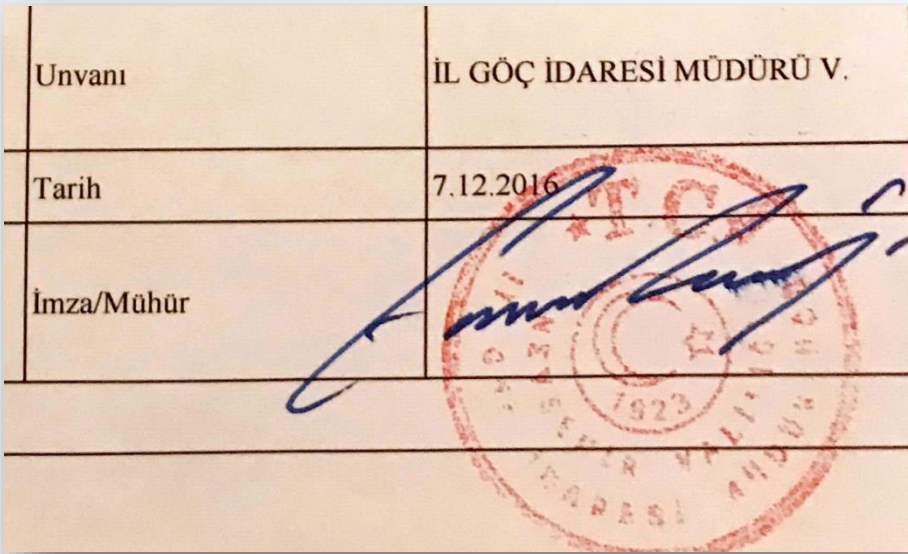 Unvanı
İL GÖÇ İDARESİ MÜDÜRÜ V.
Tarih
7.12.2016
İmza/Mühür
T.C.
1923